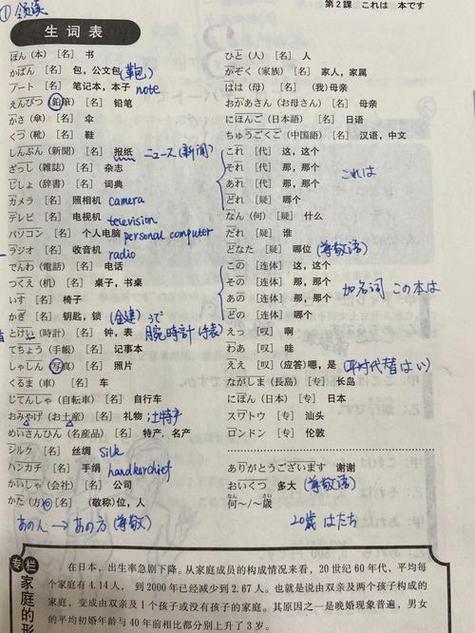 第2課 これは 本です
① 
生词表
ほん（本）［名］书
かばん［名］包，公文包(鞄包)
ノート［名］笔记本，本子 note
えんぴつ（鉛筆）［名］铅笔
かさ（傘）［名］伞
くつ（靴）［名］鞋
しんぶん（新聞）［名］报纸 ニュース(新闻)
ざっし（雑誌）［名］杂志
じしょ（辞書）［名］词典
カメラ［名］照相机 camera
テレビ［名］电视机 television
パソコン［名］个人电脑 personal computer
ラジオ［名］收音机 radio
でんわ（電話）［名］电话
つくえ（机）［名］桌子，书桌
いす［名］椅子
かぎ［名］钥匙，锁
とけい（時計）［名］钟，表 腕時計(手表)
てちょう（手帳）［名］记事本
しゃしん（写真）［名］照片
くるま（車）［名］车
じてんしゃ（自転車）［名］自行车
おみやげ（お土産）［名］礼物 土特产
めいさんひん（名産品）［名］特产，名产
シルク［名］丝绸 silk
ハンカチ［名］手绢 handkerchief
かいしゃ（会社）［名］公司
かた（方）［名］（敬称）位，人
あの人 → あの方(尊敬)
ひと（人）［名］人
かぞく（家族）［名］家人，家属
はは（母）［名］（我）母亲
おかあさん（お母さん）［名］母亲
にほんご（日本語）［名］日语
ちゅうごくご（中国語）［名］汉语，中文
これ［代］这，这个
それ［代］那，那个
あれ［代］那，那个
どれ［疑］哪个
これは
なん（何）［疑］什么
だれ［疑］谁
どなた［疑］哪位 (尊敬语)
この［连体］这，这个
その［连体］那，那个
あの［连体］那，那个
どの［连体］哪个
加名词 この本は
えっ［叹］啊
わあ［叹］哇
ええ［叹］（应答）嗯，是 (平时代替はい)
ながしま（長島）［专］长岛
にほん（日本）［专］日本
スワトウ［专］汕头
ロンドン［专］伦敦
ありがとうございます 谢谢
おいくつ 多大 (尊敬语)
なん さい
何～/～歳
20歳 はたち
专栏
家庭的形
在日本，出生率急剧下降。从家庭成员的构成情况来看，20世纪60年代，平均每
个家庭有4.14人，到2000年已经减少到2.67人。也就是说由双亲及两个孩子构成的
家庭，变成由双亲及1个孩子或没有孩子的家庭。其原因之一是晚婚现象普遍，男女
的平均初婚年龄与40年前相比都分别上升了3岁。